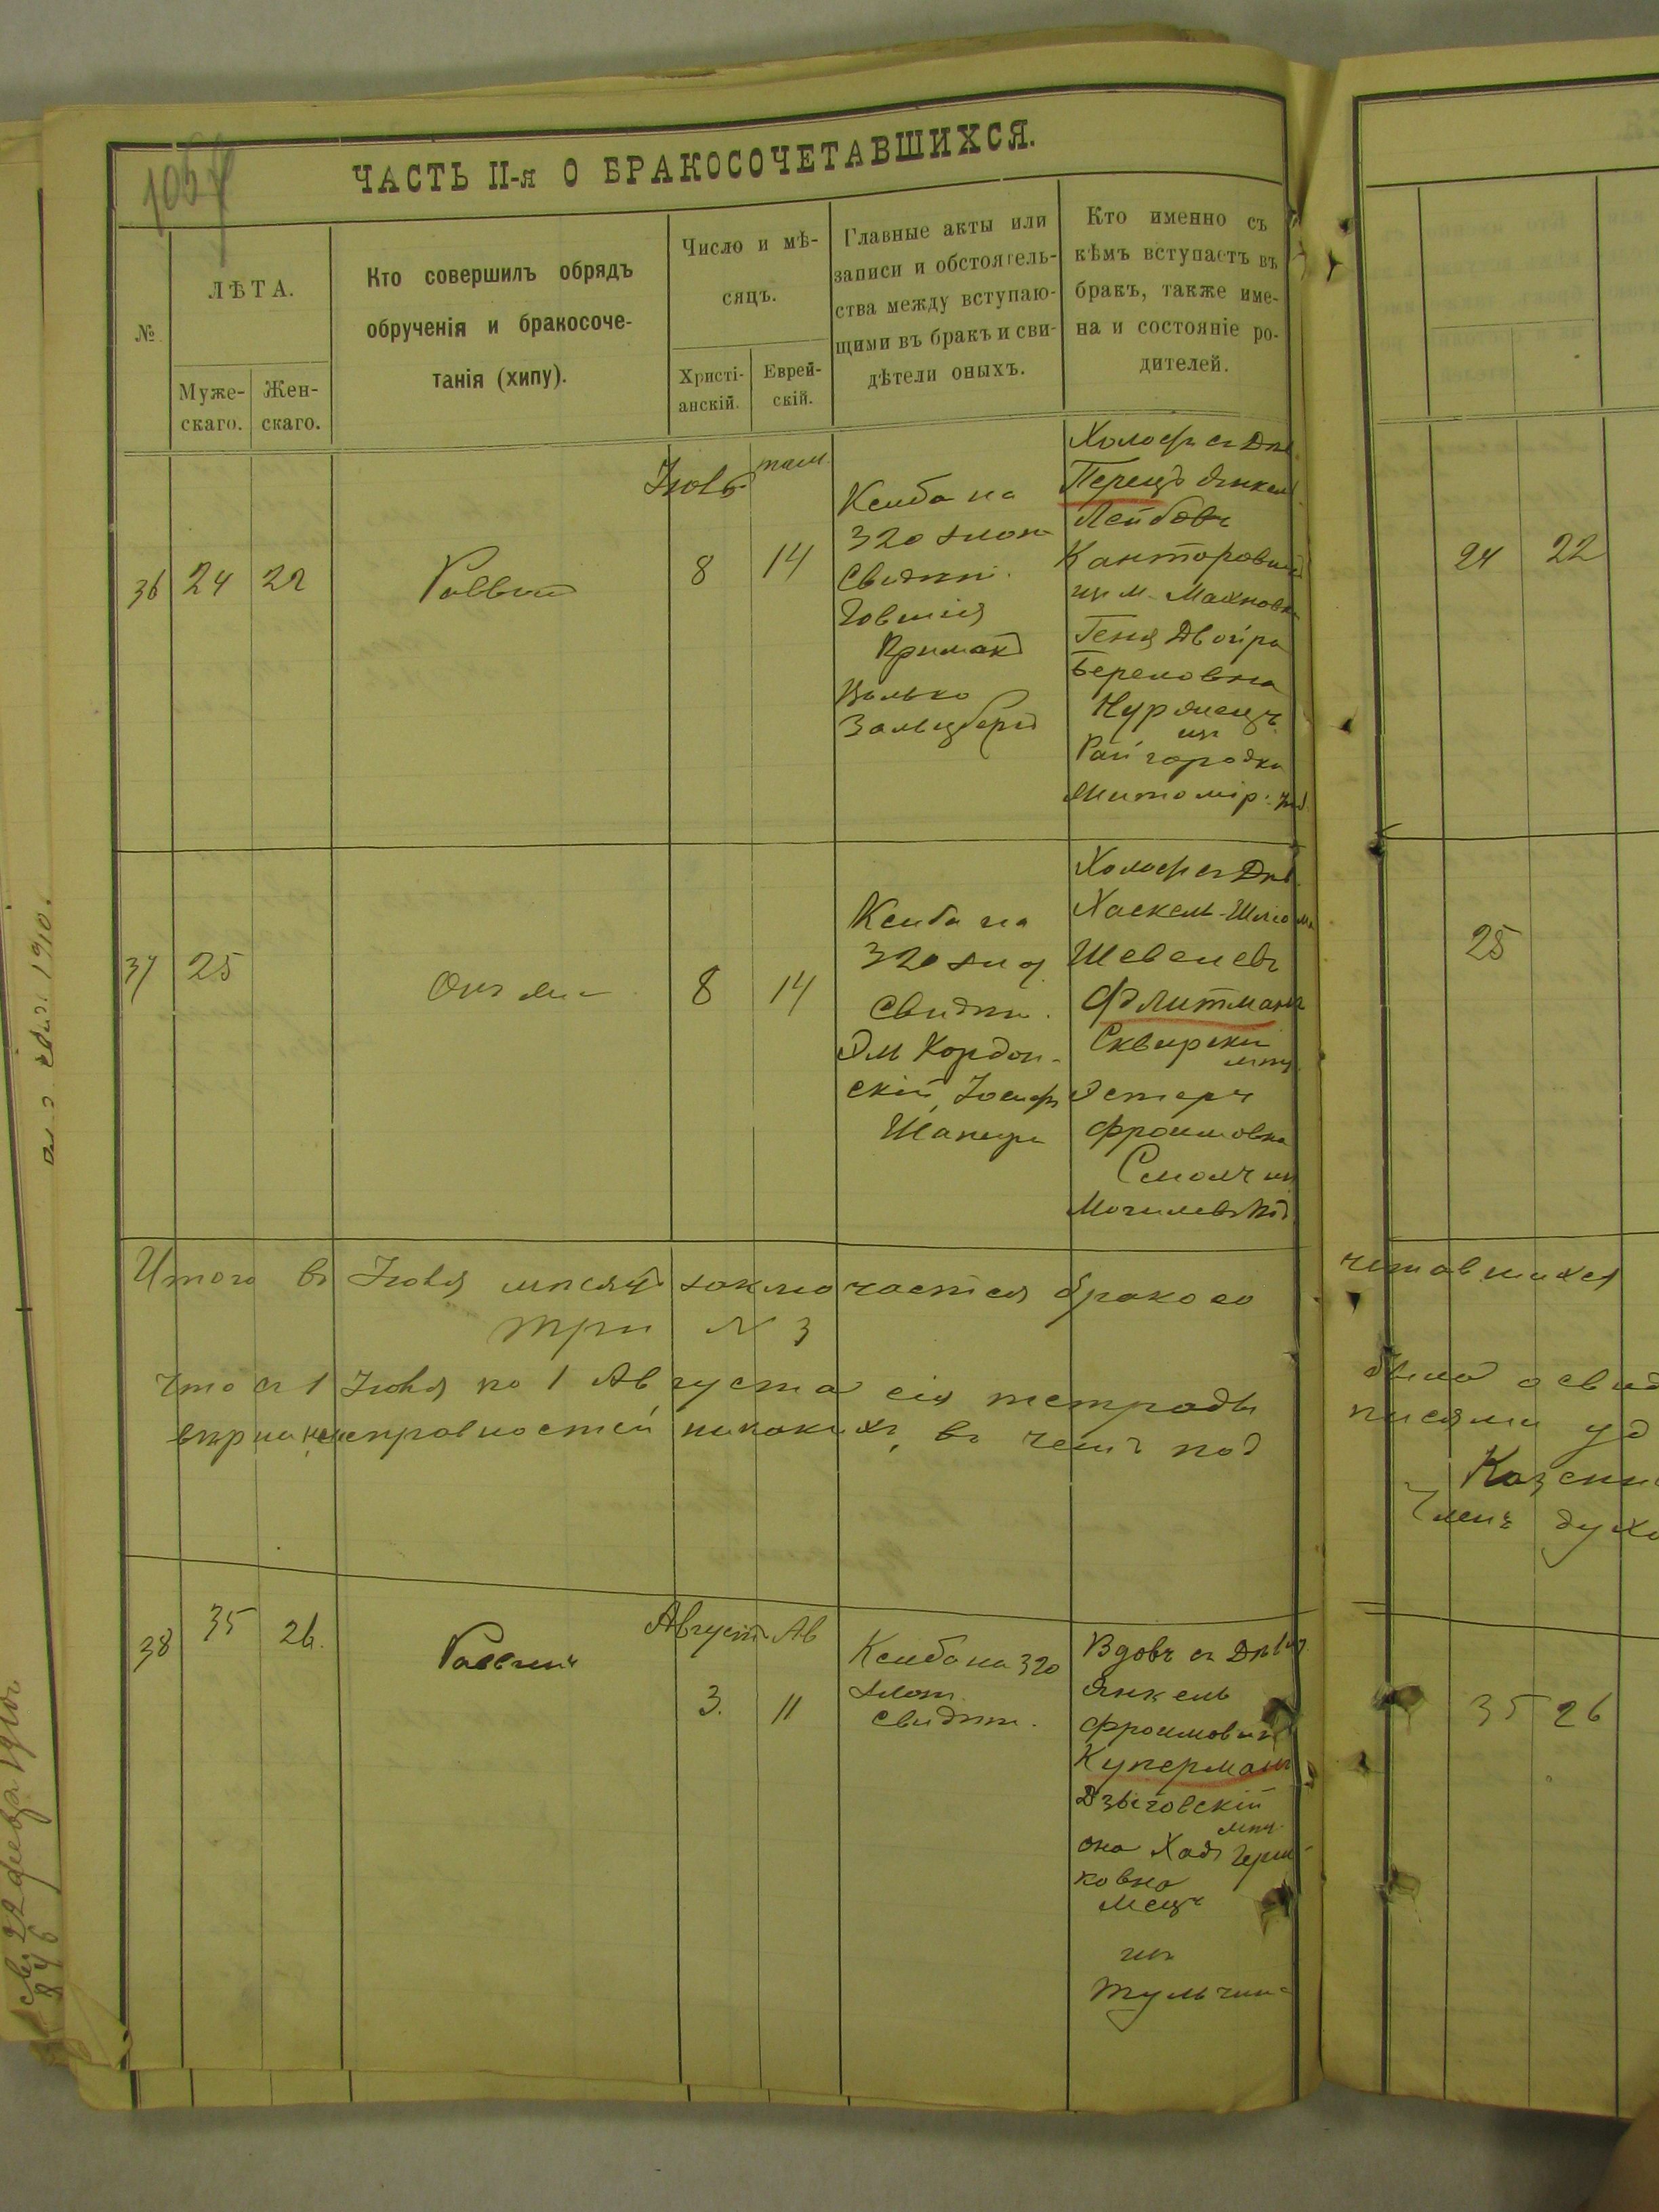 1057
ЧАСТЬ II-я О БРАКОСОЧЕТАВШИХСЯ.
№
ЛѢТА.
Муже-
скаго.
Жен-
скаго.
Кто совершилъ обрядъ
обрученія и бракосоче-
танія (хипу).
Число и мѣ-
сяцъ.
Христі-
анскій.
Еврей-
скій.
Главные акты или
записи и обстоятель-
ства между вступаю-
щими въ бракъ и сви-
дѣтели оныхъ.
Кто именно съ
кѣмъ вступаетъ въ
бракъ, также име-
на и состояніе ро-
дителей.
36
24
22
Раввин
Іюль
8
14
Ксиба на
320 злот
Свидѣт.
Примак
Зальцберг
Холост съ Дѣв.
Перецъ Янкел
Лейбов
Канторович
из м. Махновк
Геня Двойра
Берковна
из
Райгородка
Житомір.
37
25
Онъ же
8
14
Ксиба на
320 зл
Свидѣт.
Эм Кордон-
скій, Іосиф
Шапиро
Холост съ Дѣв.
Хаскель-Шлиома
Шевелев
Флитман
Сквирскій
мѣщ.
Эстеръ
Фроимовна
Могилев Под
Итого въ Іюлѣ мѣсяцѣ заключается брако со
три № 3
Что съ 1 Іюля по 1 Августа сія тетрадь
неисправностей никаких, въ чемъ под
38
35
26.
Раввинъ
Августъ
Ав
3.
11
Ксиба на 320
злот.
Свидѣт.
Вдовъ съ Дѣвиц.
Янкель
Фроимович
Куперман
Дзыговскій
мѣщ.
она Хая Герш
ковна
из
Тульчин
24
22
25
четавшихся
была освид
писями уд
Казенн
Членъ духо
35
26